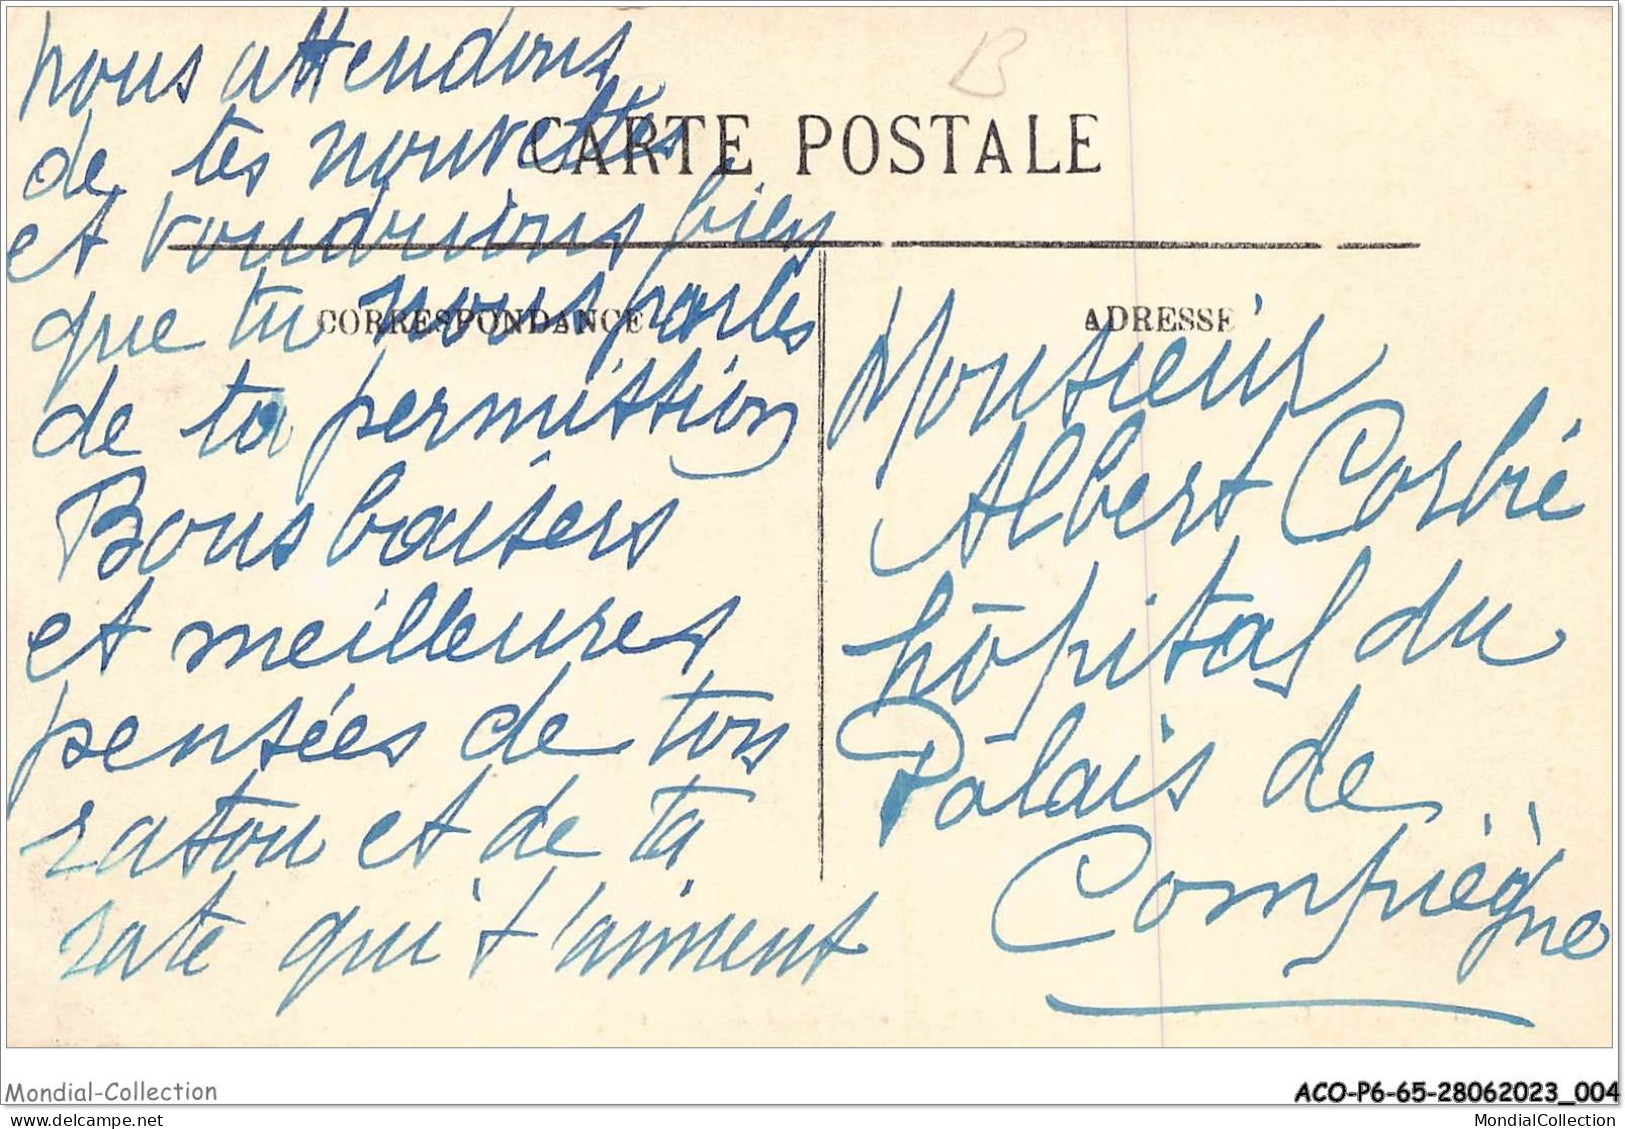 B
CARTE POSTALE
nous attendons
de tes nouvelles
et voudrions bien
que tu nous parles
de ta permission
Bons baisers
et meilleures
pensées de ton
raton et de ta
rate qui t'aiment
CORRESPONDANCE
ADRESSE
Monsieur
Albert Corbié
hôpital du
Pâlais de
Compiègne
Mondial-Collection
ACO-P6-65-28062023_004
© delcampe.net
MondialCollection